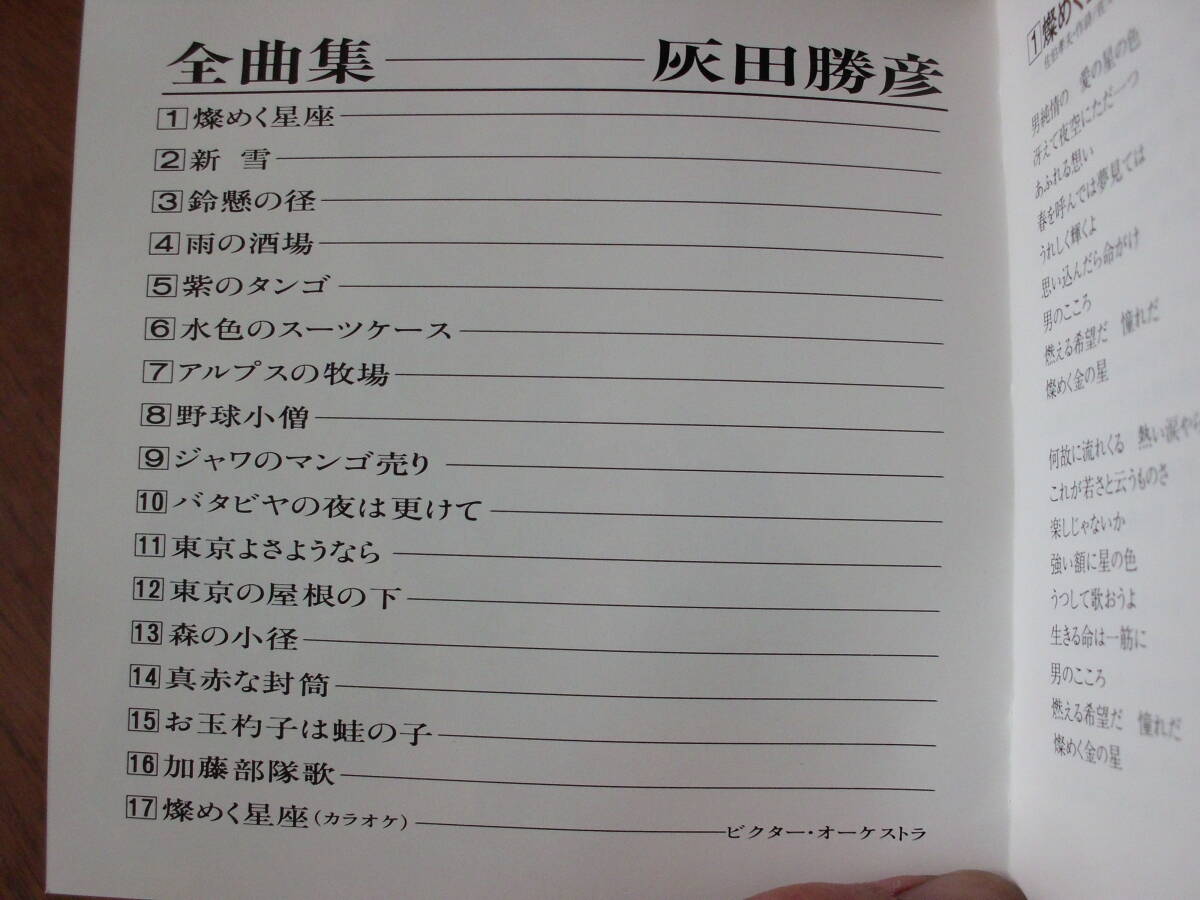 全曲集 灰田勝彦
1 燦めく星座
2 新 雪
3 鈴懸の径
4 雨の酒場
5 紫のタンゴ
6 水色のスーツケース
7 アルプスの牧場
8 野球小僧
9 ジャワのマンゴ売り
10 バタビヤの夜は更けて
11 東京よさようなら
12 東京の屋根の下
13 森の小径
14 真赤な封筒
15 お玉杓子は蛙の子
16 加藤部隊歌
17 燦めく星座(カラオケ) ビクター・オーケストラ
1 燦めく
男純情の 愛の星の色
冴えて夜空にただ一つ
あふれる想い
春を呼んでは夢見ては
うれしく輝くよ
思い込んだら命がけ
男のこころ
燃える希望だ 憧れだ
燦めく金の星
何故に流れくる 熱い涙やら
これが若さと云うものさ
楽しじゃないか
強い額に星の色
うつして歌おうよ
生きる命は一筋に
男のこころ
燃える希望だ 憧れだ
燦めく金の星